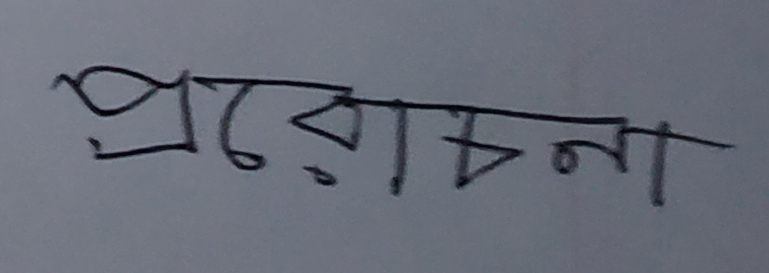 প্ররোচনা